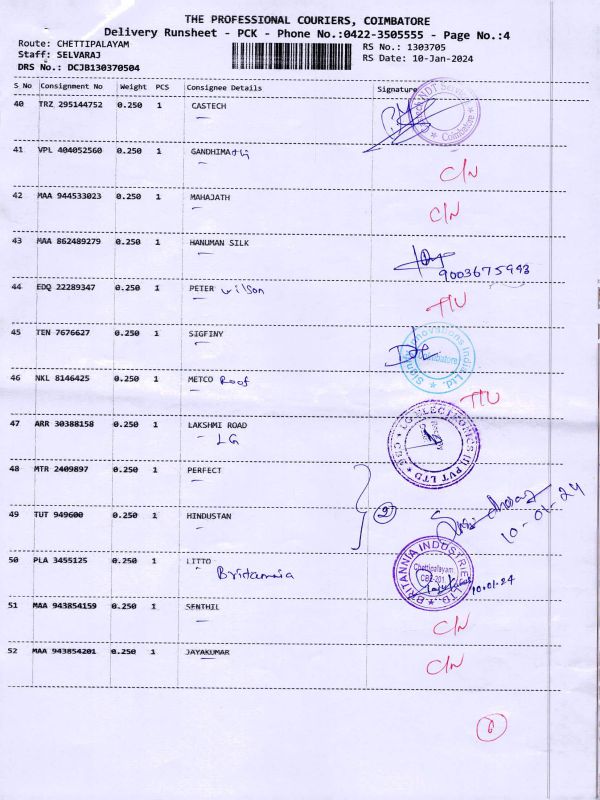 THE PROFESSIONAL COURIERS, COIMBATORE
Delivery Runsheet - PCK - Phone No.:0422-3505555 - Page No.:4
Route: CHETTIPALAYAM
RS No.: 1303705
Staff: SELVARAJ
RS Date: 10-Jan-2024
DRS No.: DCJB130370504
S No Consignment No Weight PCS Consignee Details Signature
40 TRZ 295144752 0.250 1 CASTECH
NDT Coimbatore
41 VPL 404052560 0.250 1 GANDHIMAthi
C/N
42 MAA 944533023 0.250 1 MAHAJATH
C/N
43 MAA 862489279 0.250 1 HANUMAN SILK
9003675943
44 EDQ 22289347 0.250 1 PETER wilson
45 TEN 7676627 0.250 1 SIGFINY
Innovations India Ltd. Coimbatore
46 NKL 8146425 0.250 1 METCO Roof
47 ARR 30388158 0.250 1 LAKSHMI ROAD
LG
LG ELECTRONICS (I) PVT LTD
48 MTR 2409897 0.250 1 PERFECT
2
49 TUT 949600 0.250 1 HINDUSTAN
10-01-24
50 PLA 3455125 0.250 1 LITTO
Britannia
BRITANNIA INDUSTRIES LTD. Chettipalayam CBE-201
10.01.24
51 MAA 943854159 0.250 1 SENTHIL
C/N
52 MAA 943854201 0.250 1 JAYAKUMAR
C/N